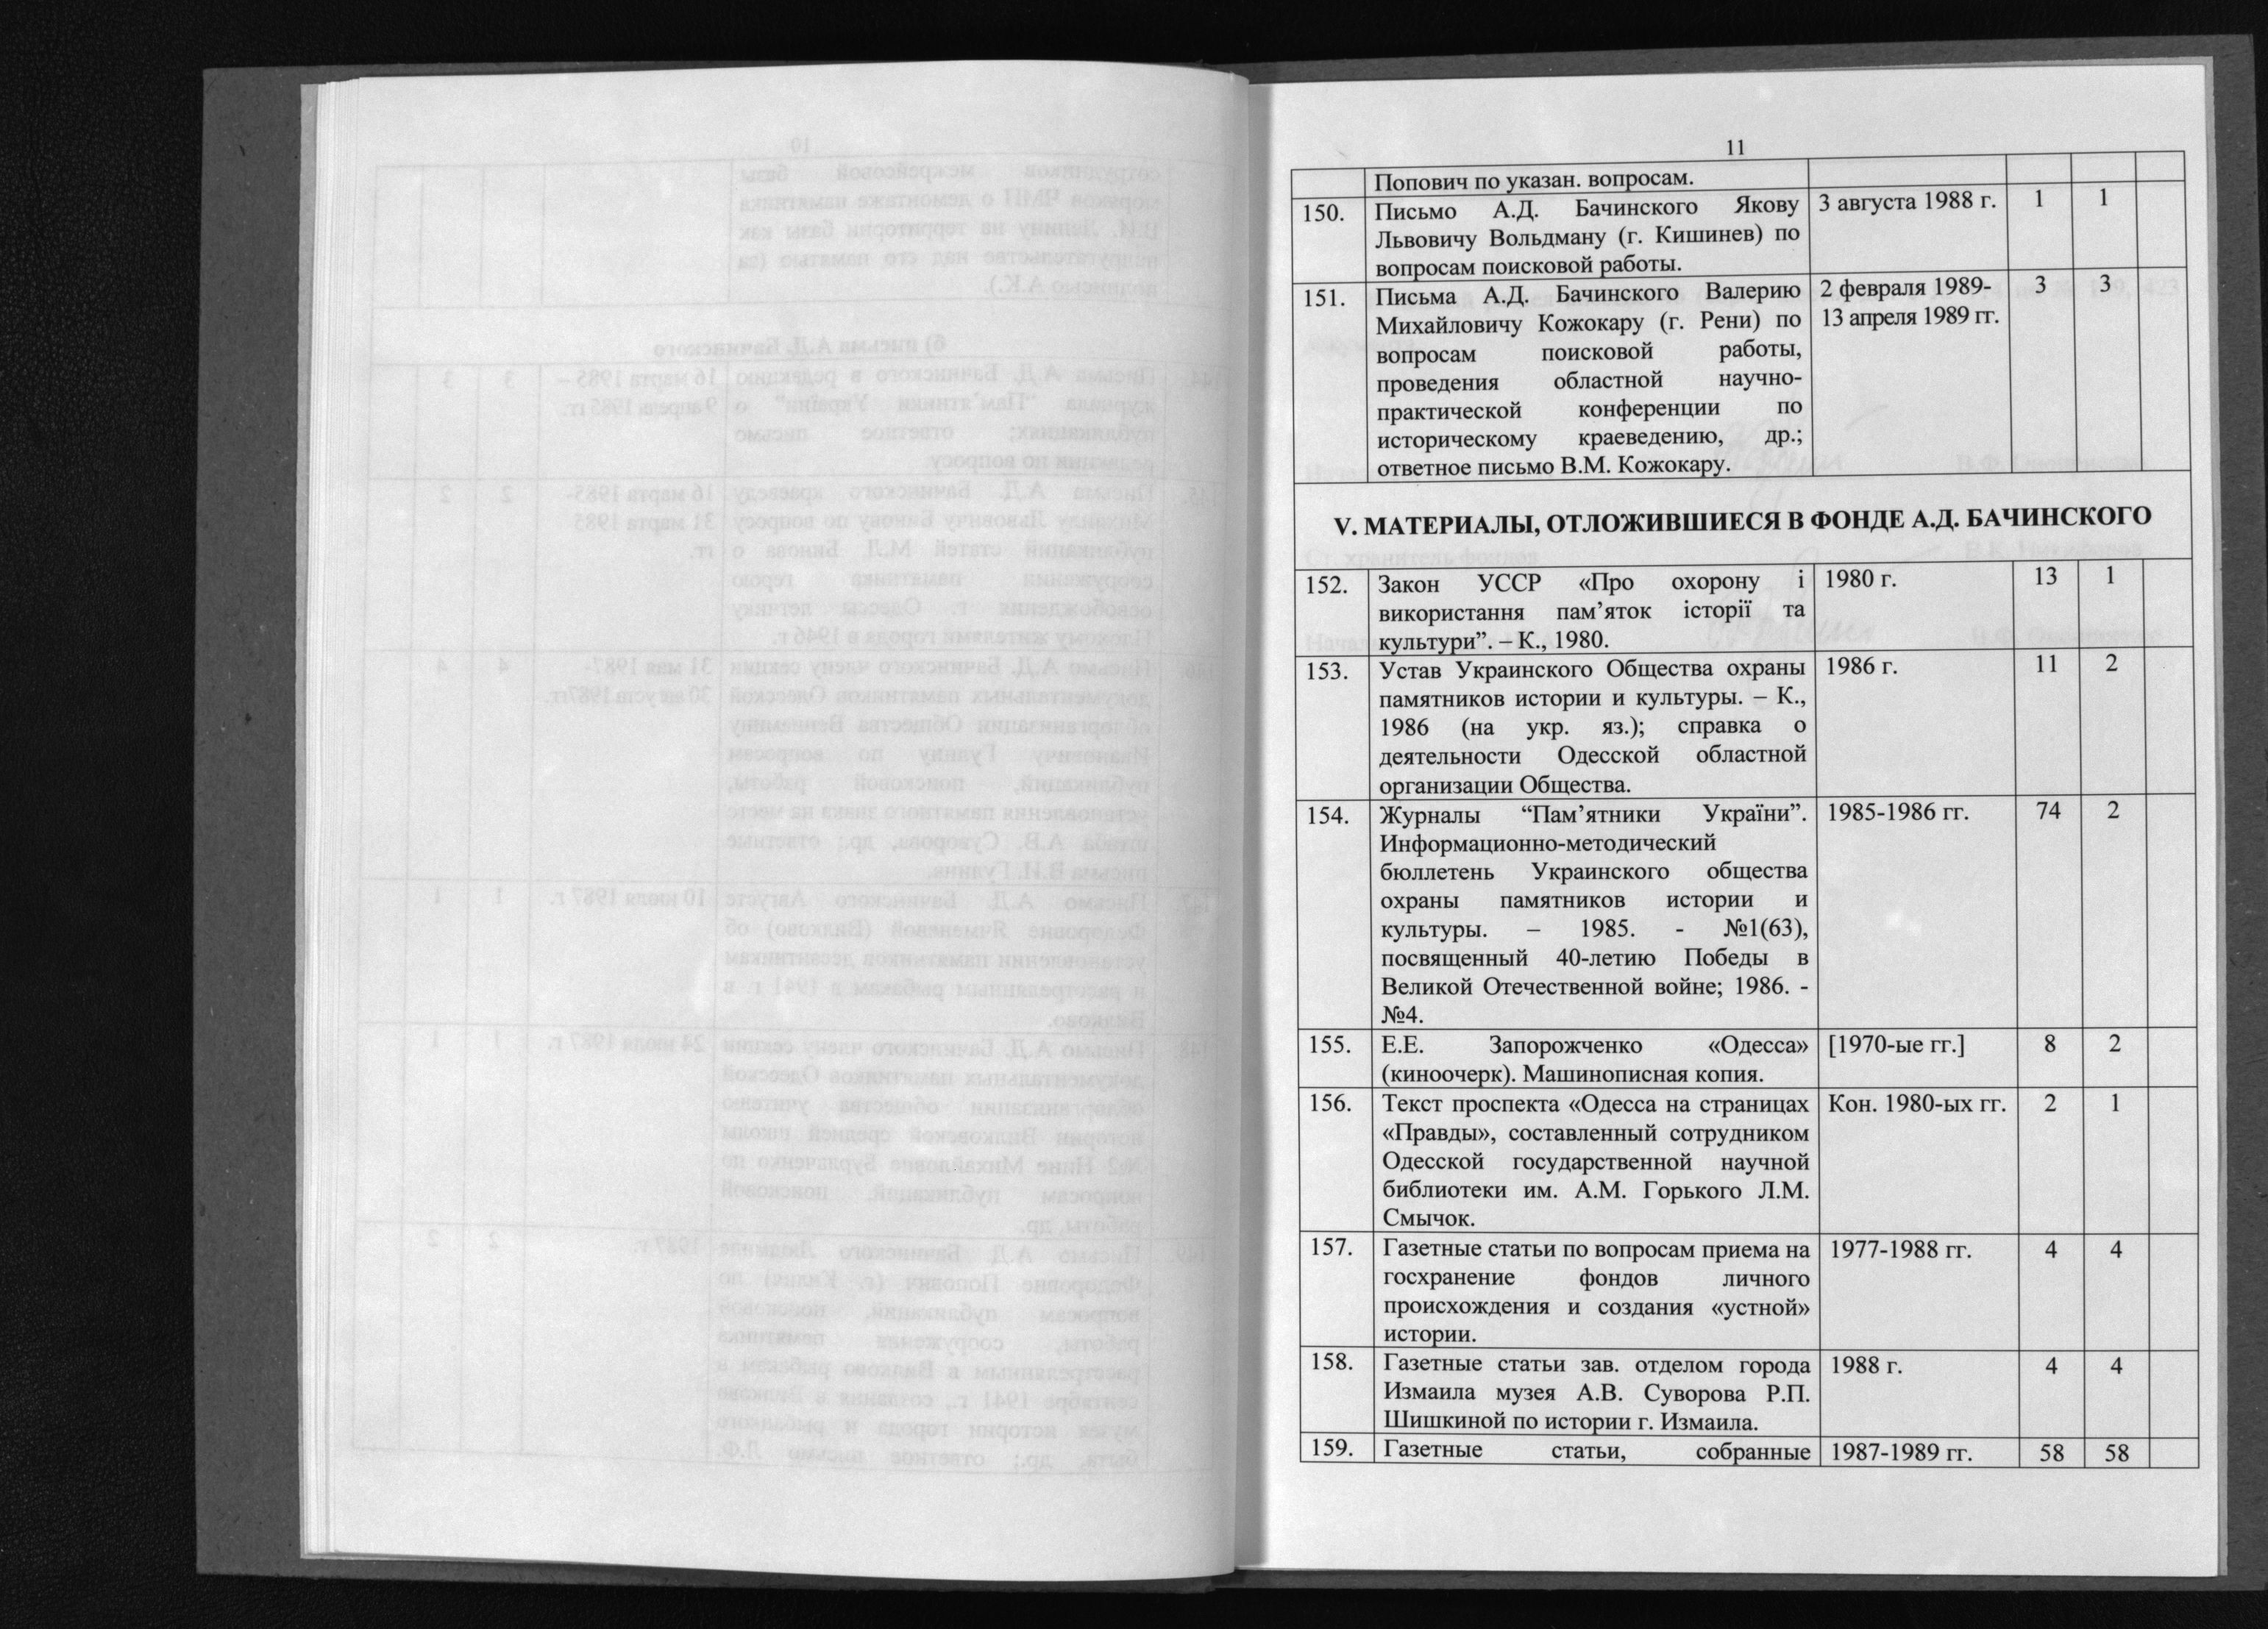 11
Попович по указан. вопросам.
150. Письмо А.Д. Бачинского Якову 3 августа 1988 г. 1 1
Львовичу Вольдману (г. Кишинев) по
вопросам поисковой работы.
151. Письма А.Д. Бачинского Валерию 2 февраля 1989- 3 3
Михайловичу Кожокару (г. Рени) по 13 апреля 1989 гг.
вопросам поисковой работы,
проведения областной научно-
практической конференции по
историческому краеведению, др.;
ответное письмо В.М. Кожокару.
V. МАТЕРИАЛЫ, ОТЛОЖИВШИЕСЯ В ФОНДЕ А.Д. БАЧИНСКОГО
152. Закон УССР «Про охорону і 1980 г. 13 1
використання пам’яток історії та
культури”. – К., 1980.
153. Устав Украинского Общества охраны 1986 г. 11 2
памятников истории и культуры. – К.,
1986 (на укр. яз.); справка о
деятельности Одесской областной
организации Общества.
154. Журналы “Пам’ятники України”. 1985-1986 гг. 74 2
Информационно-методический
бюллетень Украинского общества
охраны памятников истории и
культуры. – 1985. - №1(63),
посвященный 40-летию Победы в
Великой Отечественной войне; 1986. -
№4.
155. Е.Е. Запорожченко «Одесса» [1970-ые гг.] 8 2
(киноочерк). Машинописная копия.
156. Текст проспекта «Одесса на страницах Кон. 1980-ых гг. 2 1
«Правды», составленный сотрудником
Одесской государственной научной
библиотеки им. А.М. Горького Л.М.
Смычок.
157. Газетные статьи по вопросам приема на 1977-1988 гг. 4 4
госхранение фондов личного
происхождения и создания «устной»
истории.
158. Газетные статьи зав. отделом города 1988 г. 4 4
Измаила музея А.В. Суворова Р.П.
Шишкиной по истории г. Измаила.
159. Газетные статьи, собранные 1987-1989 гг. 58 58